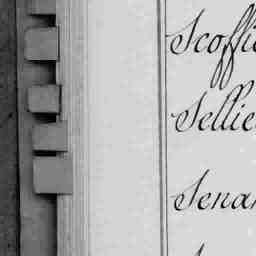 Scoffie
Sellie
Senar